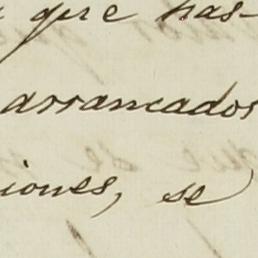 que has-
arrancados
iones, se